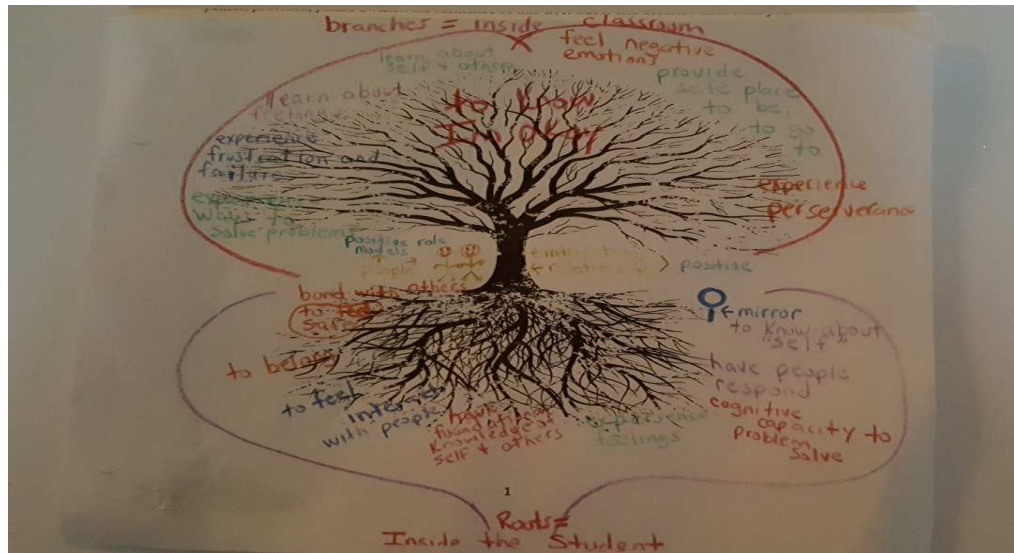 branches = inside classroom
learn about
self + others
feel negative
emotions
provide
safe place
to be,
to go
to
learn about
feelings
to know
I'm okay
experience
frustration and
failure
experience
ways to
solve problems
experience
perserverance
positive role
models
people
interaction
relationships
positive
bond with others
to feel
safe
← mirror
to know about
"self"
to belong
have people
respond
to feel
interest
with people
have
knowledge of
self + others
experience
feelings
cognitive
capacity to
problem
solve
1
Roots =
Inside the Student